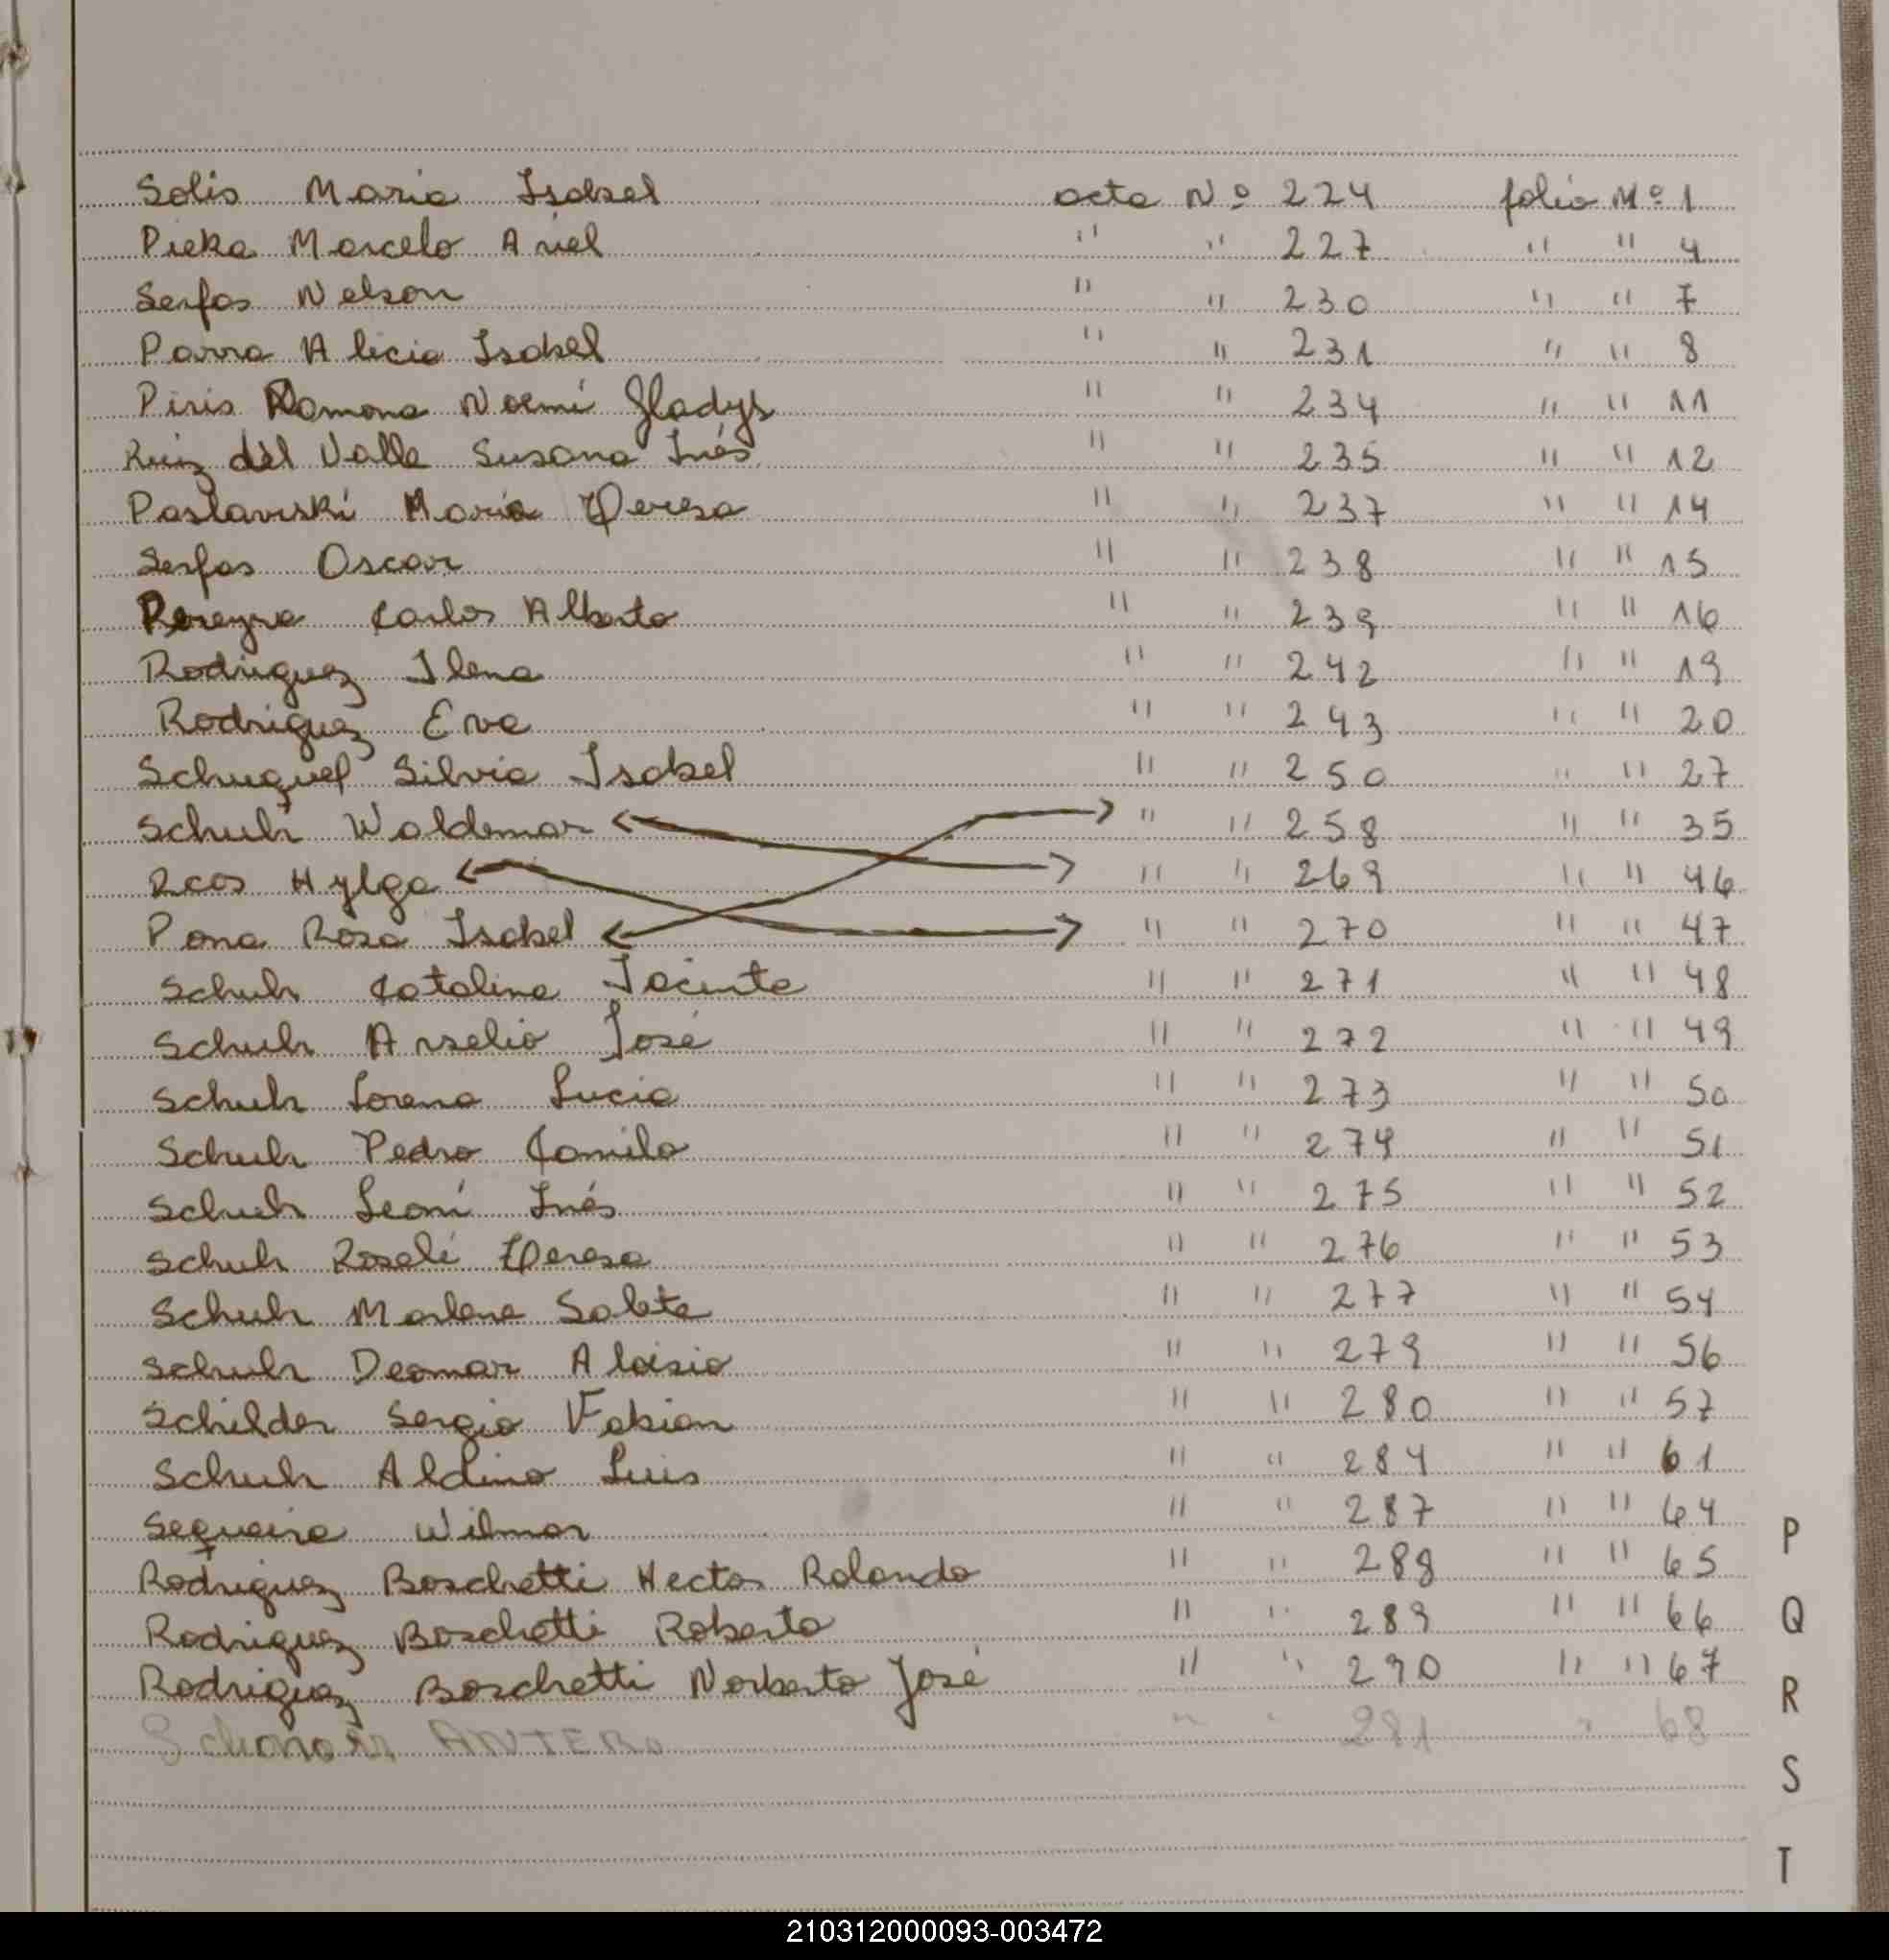 Solis Maria Isabel acta Nº 224 folio Nº 1
Pieka Marcelo Ariel " " 227 " " 4
Serfas Nelson " " 230 " " 7
Parra Alicia Isabel " " 231 " " 8
Piris Ramona Noemí Gladys " " 234 " " 11
Ruiz del Valle Susana Inés " " 235 " " 12
Poslavski Maria Teresa " " 237 " " 14
Serfas Oscar " " 238 " " 15
Pereyra Carlos Alberto " " 239 " " 16
Rodriguez Ilena " " 242 " " 19
Rodriguez Eva " " 243 " " 20
Schuquel Silvia Isabel " " 250 " " 27
Schuh Waldemar " " 258 " " 35
Hylga " " 269 " " 46
Pona Rosa Isabel " " 270 " " 47
Schuh Catalina Jacinta " " 271 " " 48
Schuh Anselio José " " 272 " " 49
Schuh Lorena Lucia " " 273 " " 50
Schuh Pedro Camilo " " 274 " " 51
Schuh Leoní Inés " " 275 " " 52
Schuh Roseli Teresa " " 276 " " 53
Schuh Marlene Salete " " 277 " " 54
Schuh Deomar Aloisio " " 279 " " 56
Schilder Sergio Fabian " " 280 " " 57
Schuh Aldino Luis " " 284 " " 61
Sequeira Wilmar " " 287 " " 64
Rodriguez Boschetti Hector Rolando " " 288 " " 65
Rodriguez Boschetti Roberto " " 289 " " 66
Rodriguez Boschetti Norberto José " " 290 " " 67
ANTERO " " 291 " 68
P
Q
R
S
T
210312000093-003472